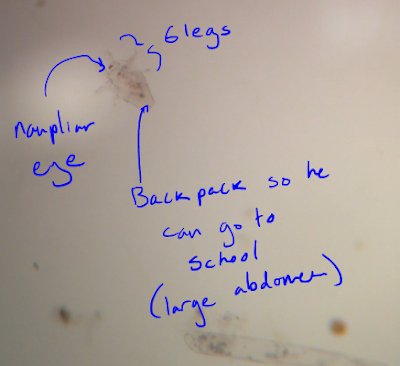 6 legs
naupliar
eye
Backpack so he
can go to
school
(large abdomen)